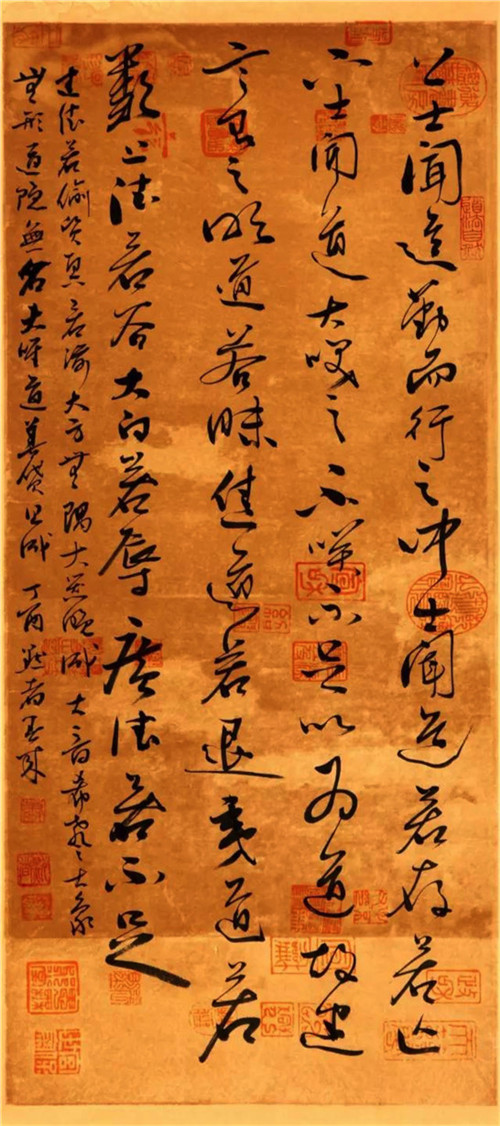 上士聞道勤而行之中士聞道若存若亡
下士聞道大咲之不咲不足以為道故建
言有之明道若昧進道若退夷道若
纇上德若谷大白若辱廣德若不足
建德若偷質真若渝大方無隅大器晚成大音希聲大象
無形道隱無名夫唯道善貸且成 丁酉